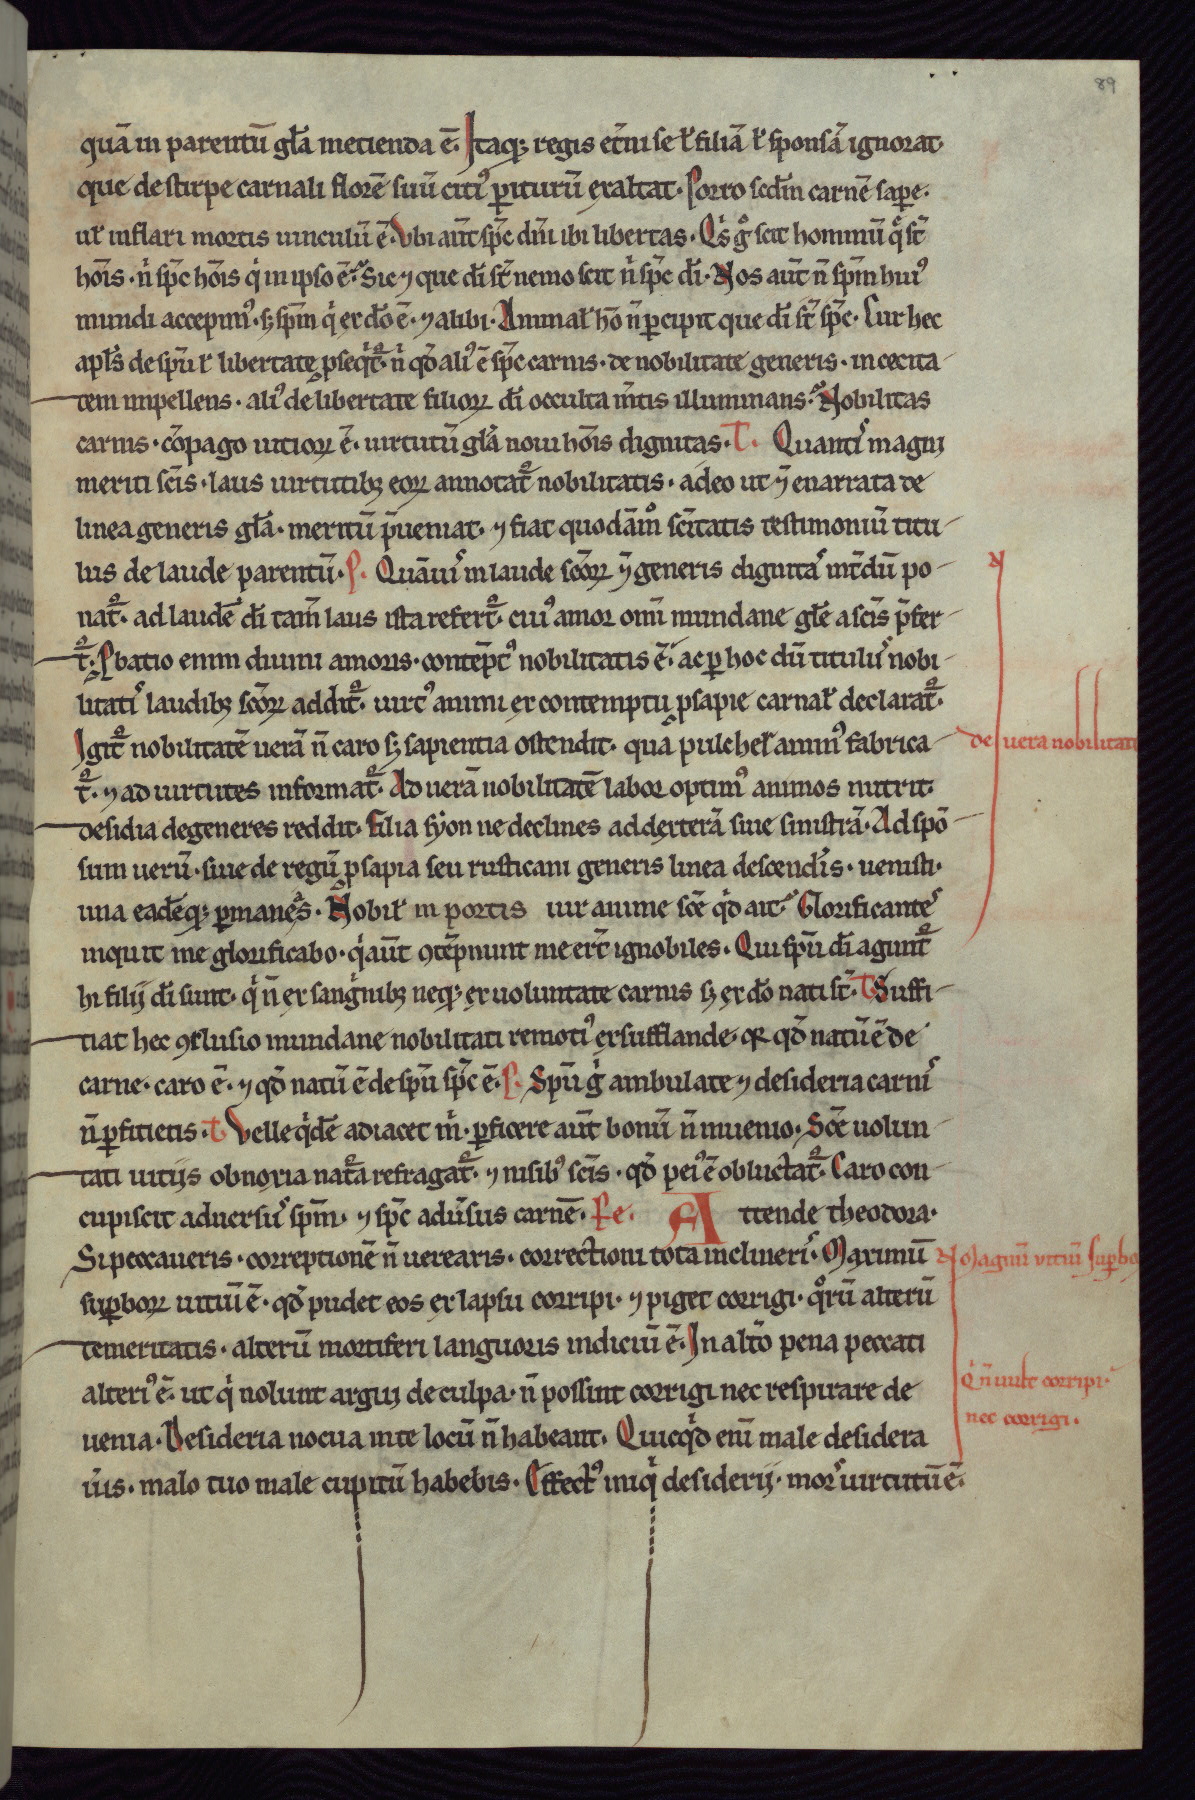 89
quā in parentū gl̄a metienda ē. Itaq; regis et̄ni se ł filiā ł sponsā ignorat.
que de stirpe carnali florē suū citiꝰ ꝑiturū exaltat. Porro scd̄m carnē saꝑe.
uł inflari mortis uinculū ē. Vbi aūt sp̄c dn̄i ibi libertas. Qͥs gͦ scit hominū q̄ st̄
hoīs. nͥ sp̄c hoīs qͥ in ipso ē. Sic ⁊ que dī st̄ nemo scit nͥ sp̄c dī. Nos aūt n̄ sp̄m huiꝰ
mundi accepimꝰ. ſ; sp̄m qͥ ex dō ē. ⁊ alibi. Animał hō n̄ ꝑcipit que dī st̄ sp̄c. Cur hec
apl̄s de sp̄u ł libertate ꝓseqͥt᷑. nͥ qd̄ aliꝰ ē sp̄c carnis. de nobilitate generis. in cecita-
tem impellens. aliꝰ de libertate filioꝝ dī occulta m̄tis illuminans. Nobilitas
carnis. cōpago uitioꝝ ē. uirtutū gl̄a noui hoīs dignitas. T. Quantͥ magni
meriti scīs. laus uirtutib; eoꝝ annotat᷑ nobilitatis. adeo ut ⁊ enarrata de
linea generis gl̄a. meritū p̄ueniat. ⁊ fiat quodāmͦ sc̄itatis testimoniū titu-
lus de laude parentū. P. Quāuis in laude sc̄oꝝ ⁊ generis dignitas int̄dū po-
nat᷑. ad laudē dī tam̄ laus ista refert᷑. cuiꝰ amor omī mundane gl̄e a scīs p̄fer-
t᷑. Ꝓbatio enim diuini amoris. contēptꝰ nobilitatis ē. ac ꝑ hoc dū titulus nobi-
litatis laudib; sc̄oꝝ addit᷑. uirtꝰ animi ex contemptu ꝓsapie carnał declarat᷑.
Igit᷑ nobilitatē uerā n̄ caro ſ; sapientia ostendit. qua pulcheł animꝰ fabrica-
t᷑. ⁊ ad uirtutes informat᷑. Ad uerā nobilitatē labor optimꝰ animos nutrit.
desidia degeneres reddit. Filia syon ne declines ad dexterā siue sinistrā. Ad spō-
sum uerū. siue de regū ꝓsapia seu rusticani generis linea descendis. uenisti.
una eadēq; ꝑmanes. Nobił in portis uir anime scē qd̄ ait. Glorificantes
inquit me glorificabo. qͥ aūt ꝯtēpnunt me er̄t ignobiles. Qui sp̄u dī agunt᷑
hi filij dī sunt. qͥ n̄ ex sangͥnib; neq; ex uoluntate carnis ſ; ex dō nati st̄. T Suffi-
tiat hec ꝯclusio mundane nobilitati remotiꝰ exsufflande. qꝛ qd̄ natū ē de
carne. caro ē. ⁊ qd̄ natū ē de sp̄u sp̄c ē. P. Sp̄u gͦ ambulate ⁊ desideria carnis
n̄ ꝑfitietis. T Velle qͥdē adiacet mͥ. ꝑficere aūt bonū n̄ inuenio. Scē uolun-
tati uitijs obnoxia nat̄a refragat᷑. ⁊ nisibꝰ scīs. qd̄ peiꝰ ē obluctat᷑. Caro con-
cupiscit aduersus sp̄m. ⁊ sp̄c adūsus carnē. Pe. Attende theodora.
Si peccaueris. correptionē n̄ uerearis. correctioni tota inclineris. Maximū
suꝑboꝝ uitiū ē. qd̄ pudet eos ex lapsu corripi. ⁊ piget corrigi. qͦrū alterū
temeritatis. alterū mortiferi languoris indiciū ē. In alt̄o pena peccati
alteriꝰ ē. ut qͥ nolunt argui de culpa. n̄ possint corrigi nec respirare de
uenia. Desideria nocua in te locū n̄ habeant. Quicqͥd enī male desidera
uͥis. malo tuo male cupitū habebis. Effectꝰ iniqͥ desiderij. mors uirtutū ē.
de uera nobilitate
Magnū vitiū suꝑbo
qͥ n̄ uult corripi.
nec corrigi.